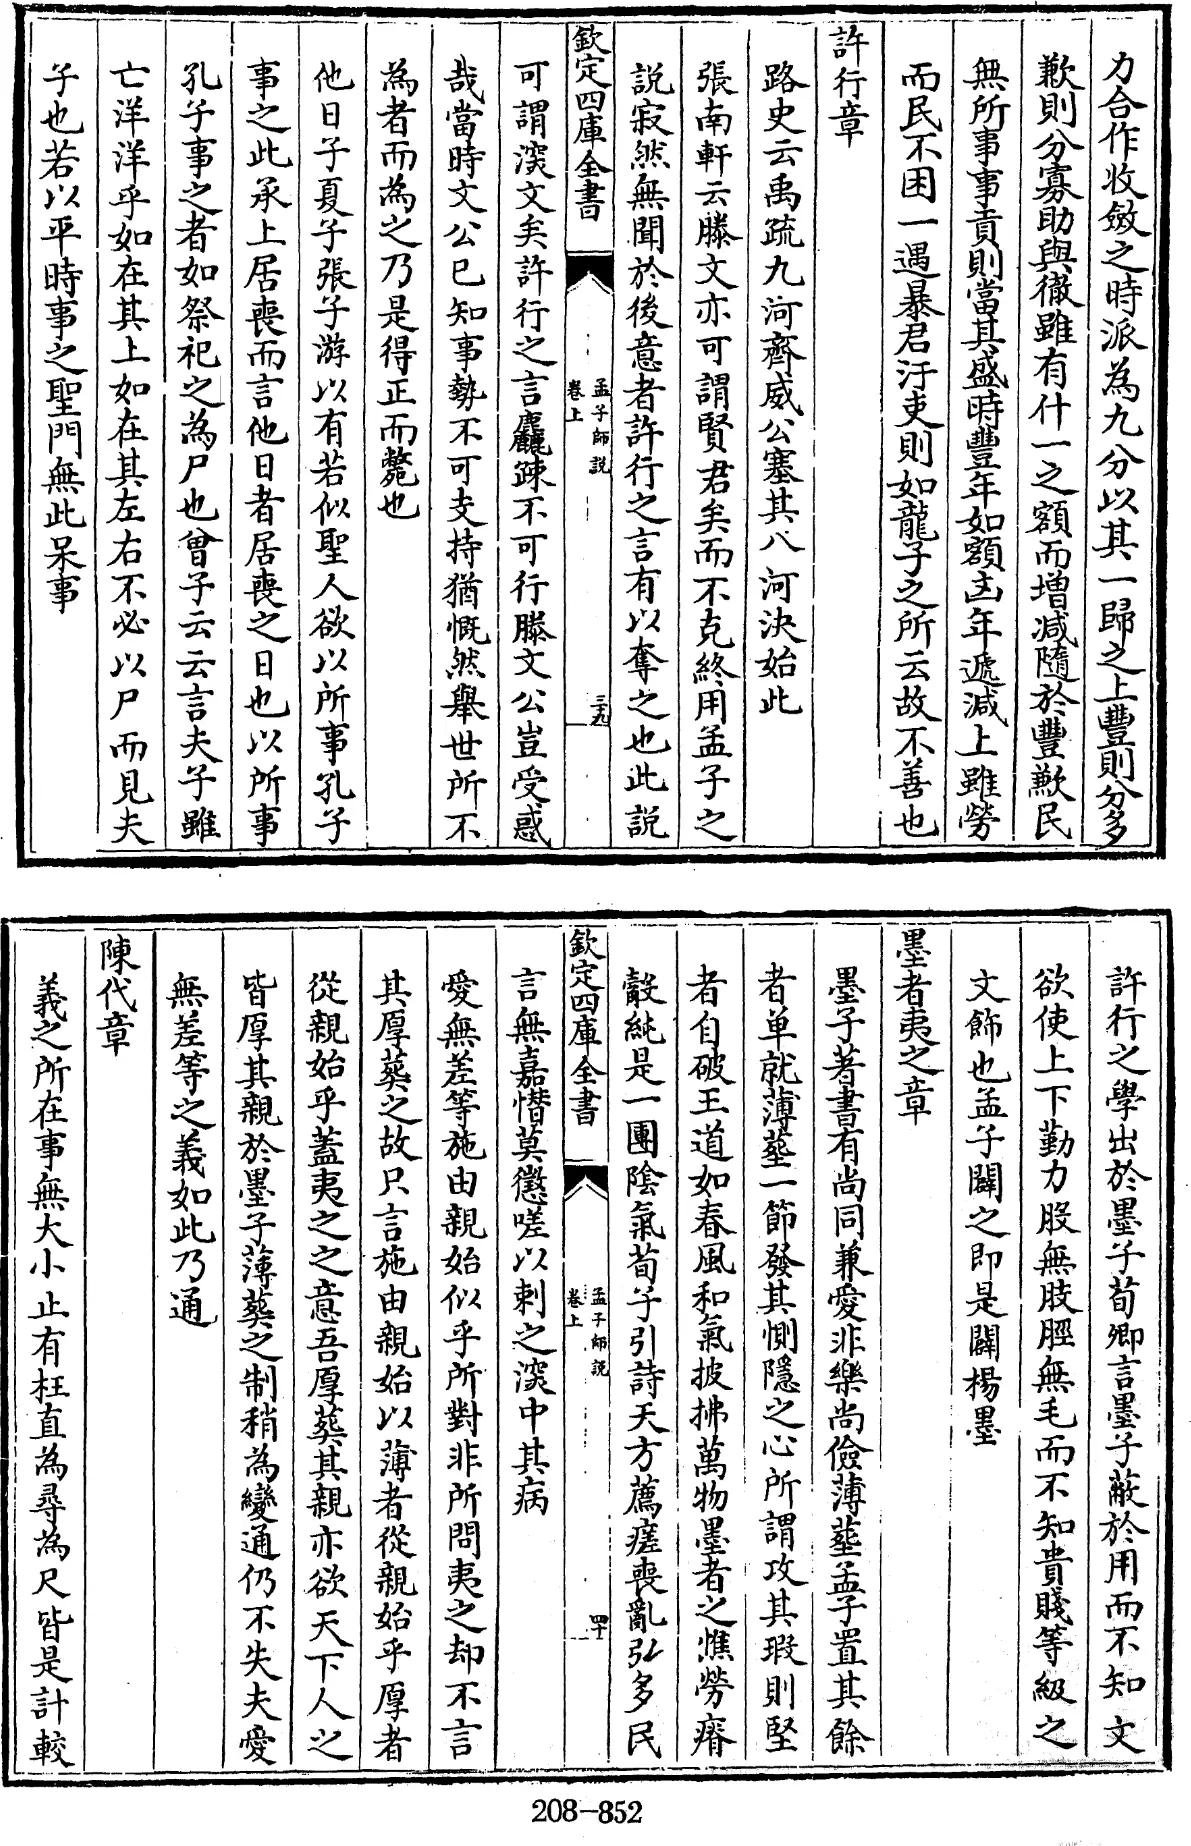 力合作收斂之時派為九分以其一歸之上豐則分多
歉則分寡助與徹雖有什一之額而增減隨於豐歉民
無所事事貢則當其盛時豐年如額凶年遞減上雖勞
而民不困一遇暴君汙吏則如龍子之所云故不善也
許行章
路史云禹疏九河齊威公塞其八河決始此
張南軒云滕文亦可謂賢君矣而不克終用孟子之
說寂然無聞於後意者許行之言有以奪之也此說
欽定四庫全書
孟子師説
卷上
三九
可謂深文矣許行之言麤疎不可行滕文公豈受惑
哉當時文公已知事勢不可支持猶慨然舉世所不
為者而為之乃是得正而斃也
他日子夏子張子游以有若似聖人欲以所事孔子
事之此承上居喪而言他日者居喪之日也以所事
孔子事之者如祭祀之為尸也曾子云云言夫子雖
亡洋洋乎如在其上如在其左右不必以尸而見夫
子也若以平時事之聖門無此呆事
許行之學出於墨子荀卿言墨子蔽於用而不知文
欲使上下勤力股無胈脛無毛而不知貴賤等級之
文飾也孟子闢之即是闢楊墨
墨者夷之章
墨子著書有尚同兼愛非樂尚儉薄塟孟子置其餘
者单就薄塟一節發其惻隱之心所謂攻其瑕則堅
者自破王道如春風和氣披拂萬物墨者之憔勞瘠
觳純是一團陰氣荀子引詩天方薦瘥喪亂弘多民
欽定四庫全書
孟子師説
卷上
四十
言無嘉憯莫懲嗟以刺之深中其病
愛無差等施由親始似乎所對非所問夷之却不言
其厚葬之故只言施由親始以薄者從親始乎厚者
從親始乎蓋夷之之意吾厚葬其親亦欲天下人之
皆厚其親於墨子薄葬之制稍為變通仍不失夫愛
無差等之義如此乃通
陳代章
義之所在事無大小止有枉直為尋為尺皆是計較
208-852